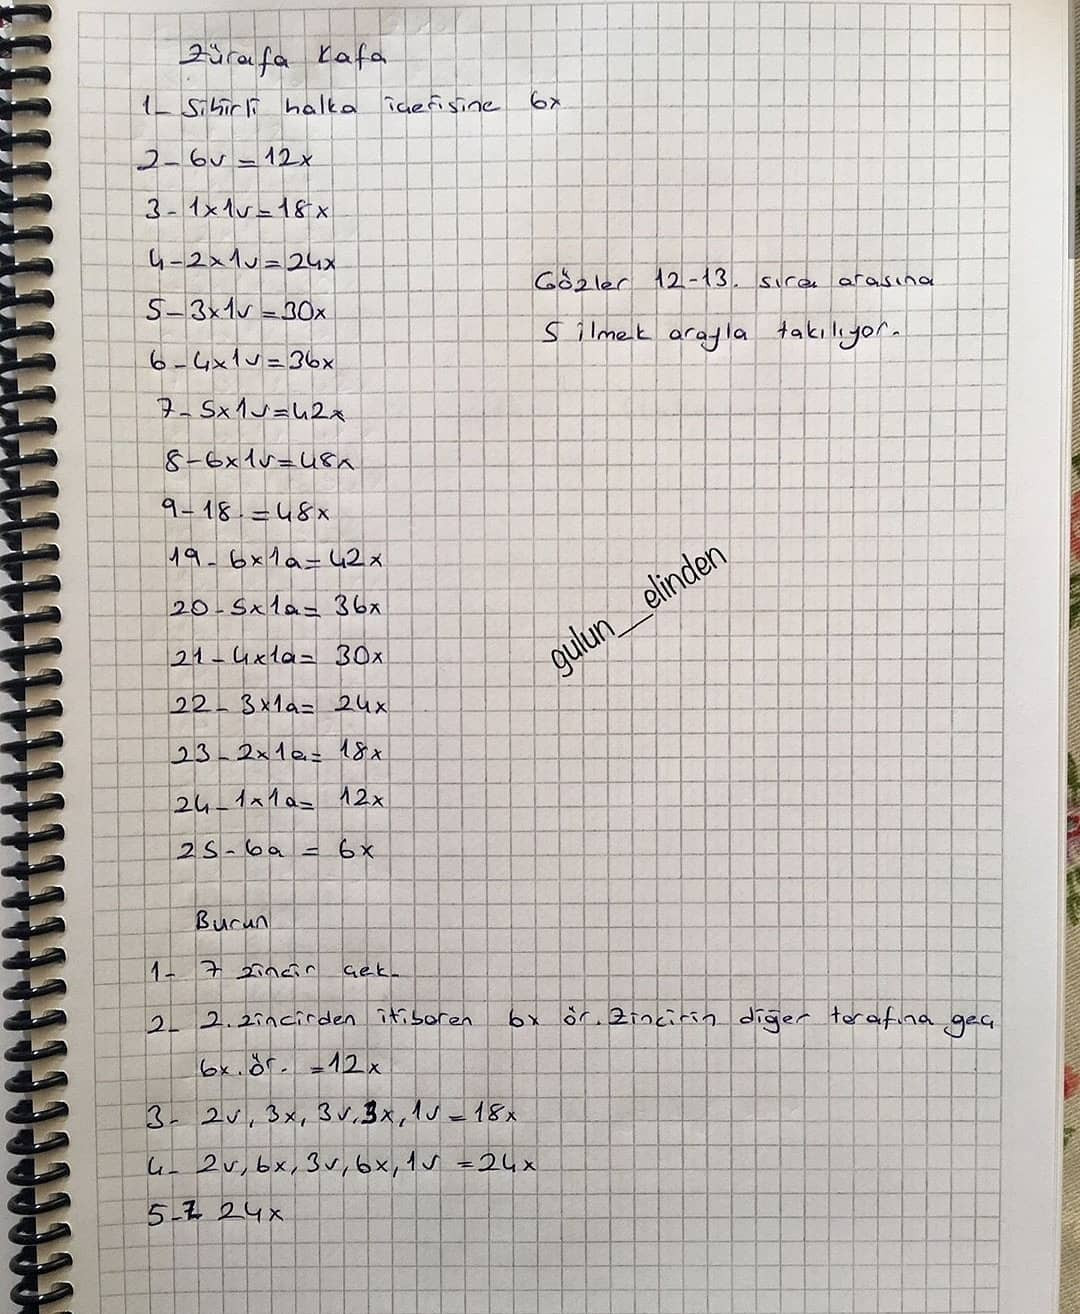 Zürafa Kafa
1- Sihirli halka içerisine 6x
2- 6v = 12x
3- 1x1v = 18x
4- 2x1v = 24x
5- 3x1v = 30x
6- 4x1v = 36x
7- 5x1v = 42x
8- 6x1v = 48x
9- 18. = 48x
19- 6x1a = 42x
20- 5x1a = 36x
21- 4x1a = 30x
22- 3x1a = 24x
23- 2x1a = 18x
24- 1x1a = 12x
25- 6a = 6x
Gözler 12-13. sıra arasına
5 ilmek arayla takılıyor.
gulun__elinden
Burun
1- 7 zincir çek.
2- 2. zincirden itibaren 6x ör. Zincirin diğer tarafına geç
6x. ör. = 12x
3- 2v, 3x, 3v, 3x, 1v = 18x
4- 2v, 6x, 3v, 6x, 1v = 24x
5-7 24x